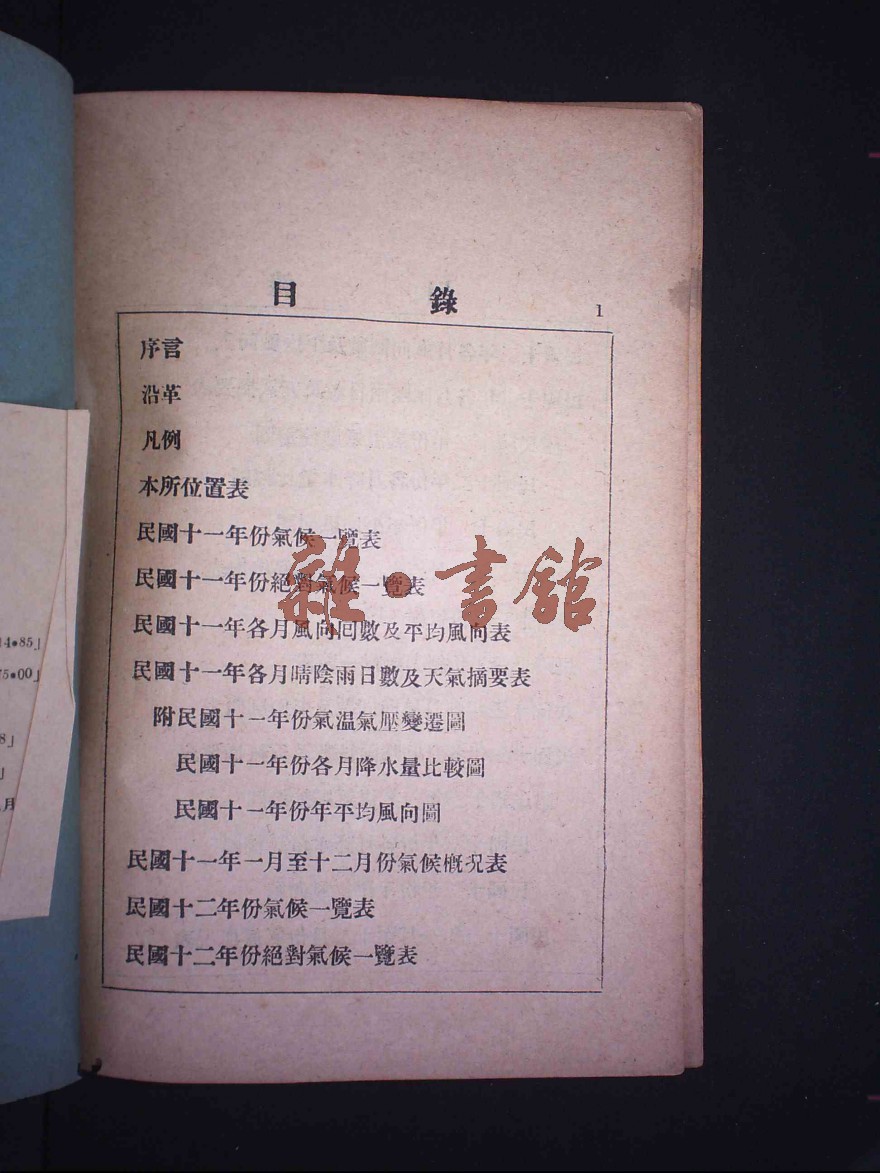 目錄
1
序言
沿革
凡例
本所位置表
民國十一年份氣候一覽表
民國十一年份絕對氣候一覽表
民國十一年各月風向回數及平均風向表
民國十一年各月晴陰雨日數及天氣摘要表
附民國十一年份氣温氣壓變遷圖
民國十一年份各月降水量比較圖
民國十一年份年平均風向圖
民國十一年一月至十二月份氣候概況表
民國十二年份氣候一覽表
民國十二年份絕對氣候一覽表
雜·書館
14•85」
75•00」
8」
」
月